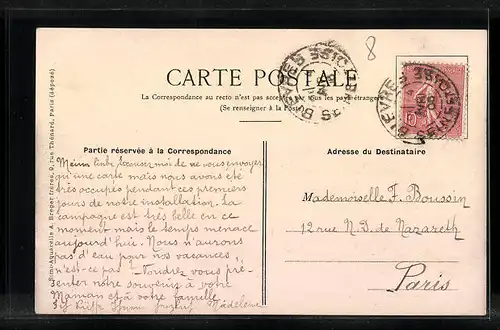 8
CARTE POSTALE
La Correspondance au recto n'est pas acceptée par tous les pays étrangers
(Se renseigner à la Poste)
BIEVRES
SEINE-ET-OISE
BIEVRES
SEINE-ET-OISE
10
Partie réservée à la Correspondance
excusez moi de ne vous envoyer
qu'une carte mais nous avons été
très occupés pendant ces premiers
jours de notre installation. La
campagne est très belle en ce
moment mais le temps menace
aujourd'hui. Nous n'aurons
pas d'eau pour nos vacances
n'est-ce pas! Voudrez vous pré-
senter notre souvenir à votre
Maman et à votre famille
Madeleine
Adresse du Destinataire
Mademoiselle F. Boussin
12 rue N. D. de Nazareth
Paris
Simo-Aquarelle A. Breger frères, 9, rue Thénard, Paris (déposé)